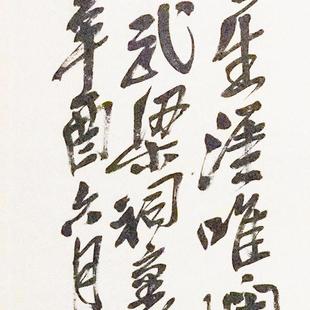 生涯唯
武梁祠画
辛酉六月